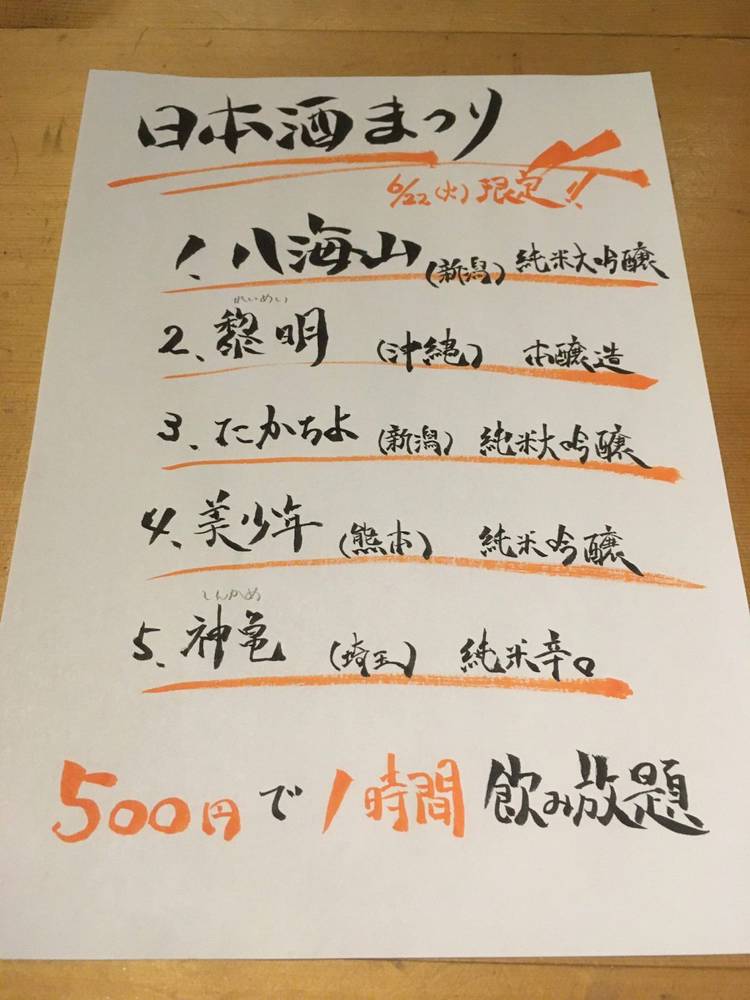 日本酒まつり
6/22(火)限定!!
1、八海山(新潟)純米大吟醸
れいめい
2、黎明(沖縄)本醸造
3、たかちよ(新潟)純米大吟醸
4、美少年(熊本)純米吟醸
しんかめ
5、神亀(埼玉)純米辛口
500円で1時間飲み放題